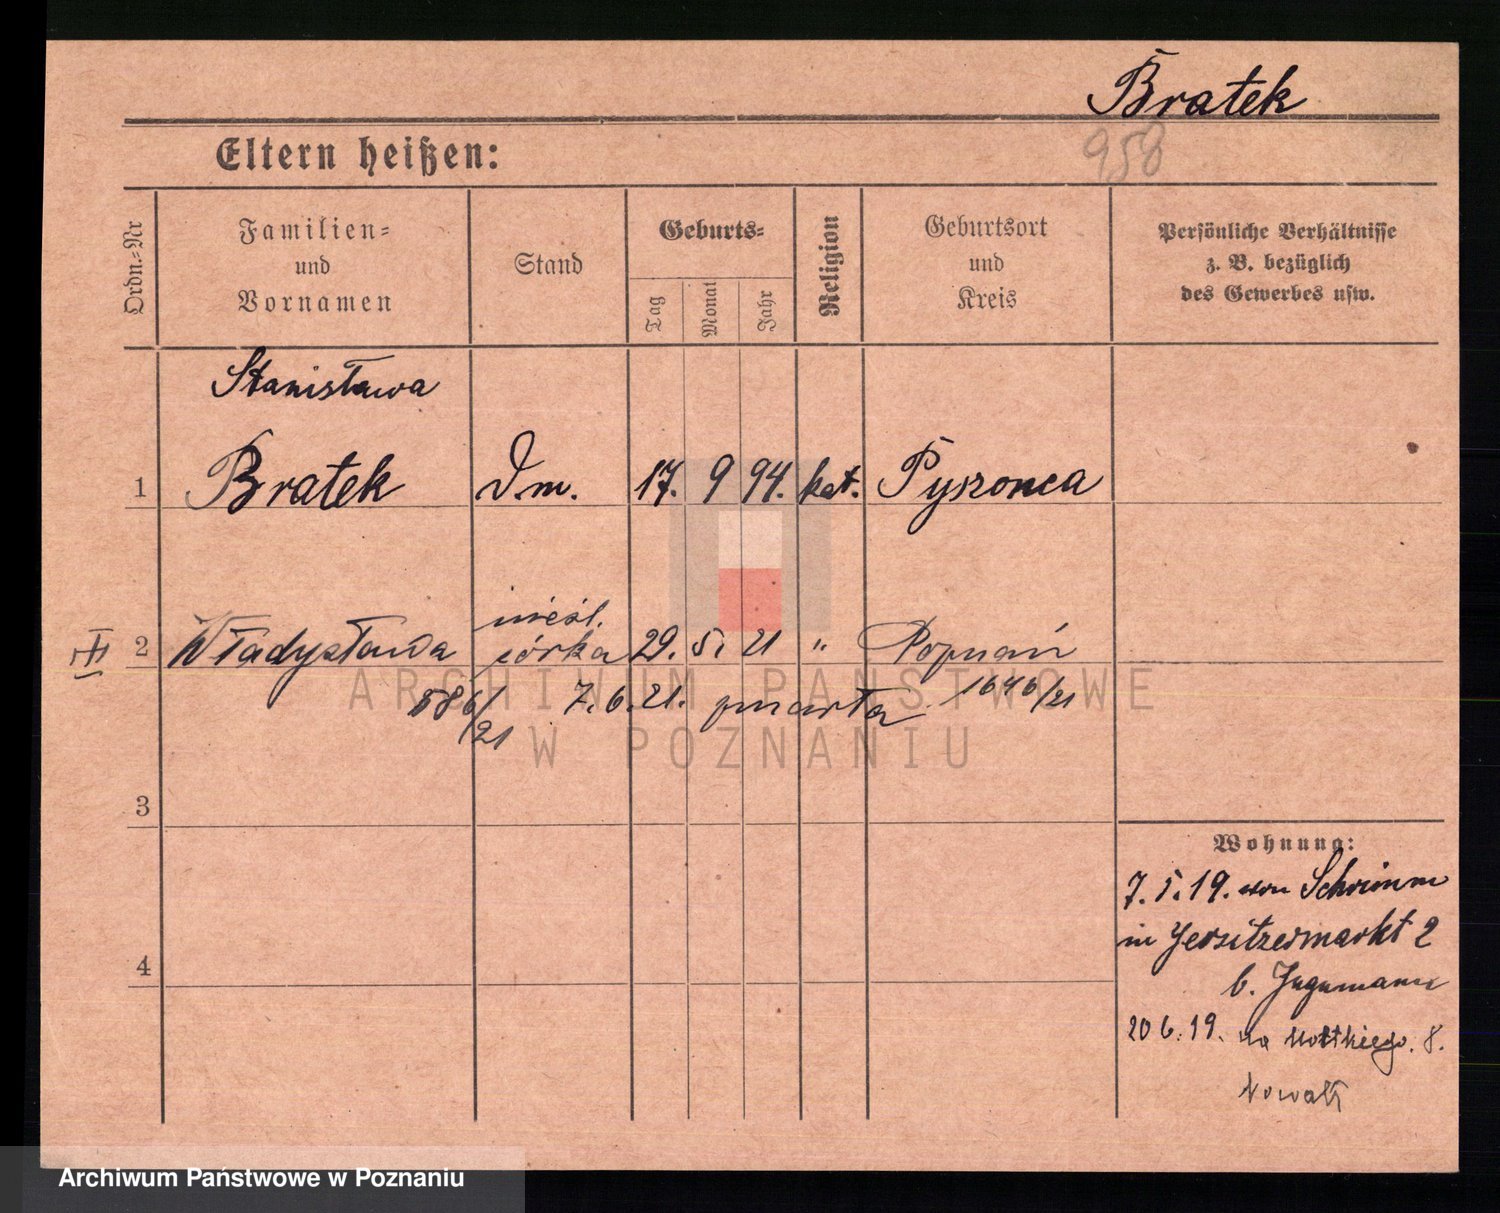 Bratek
958
Eltern heißen:
Ordn.=Nr
Familien=
und
Vornamen
Stand
Geburts=
Tag
Monat
Jahr
Religion
Geburtsort
und
Kreis
Persönliche Verhältnisse
z. B. bezüglich
des Gewerbes usw.
Stanisława
1 Bratek Dm. 17. 9 94. kat. Pyszonca
nieśl.
2 Władysława córka 29. 5. 21 " Poznań
586/21 7.6.21. zmarła 1646/21
ARCHIWUM PAŃSTWOWE
W POZNANIU
3
4
Wohnung:
7.5.19. von Schrimm
in Jersitzermarkt 2
b.
20 6. 19. na Moltkiego. 8.
Nowak
Archiwum Państwowe w Poznaniu